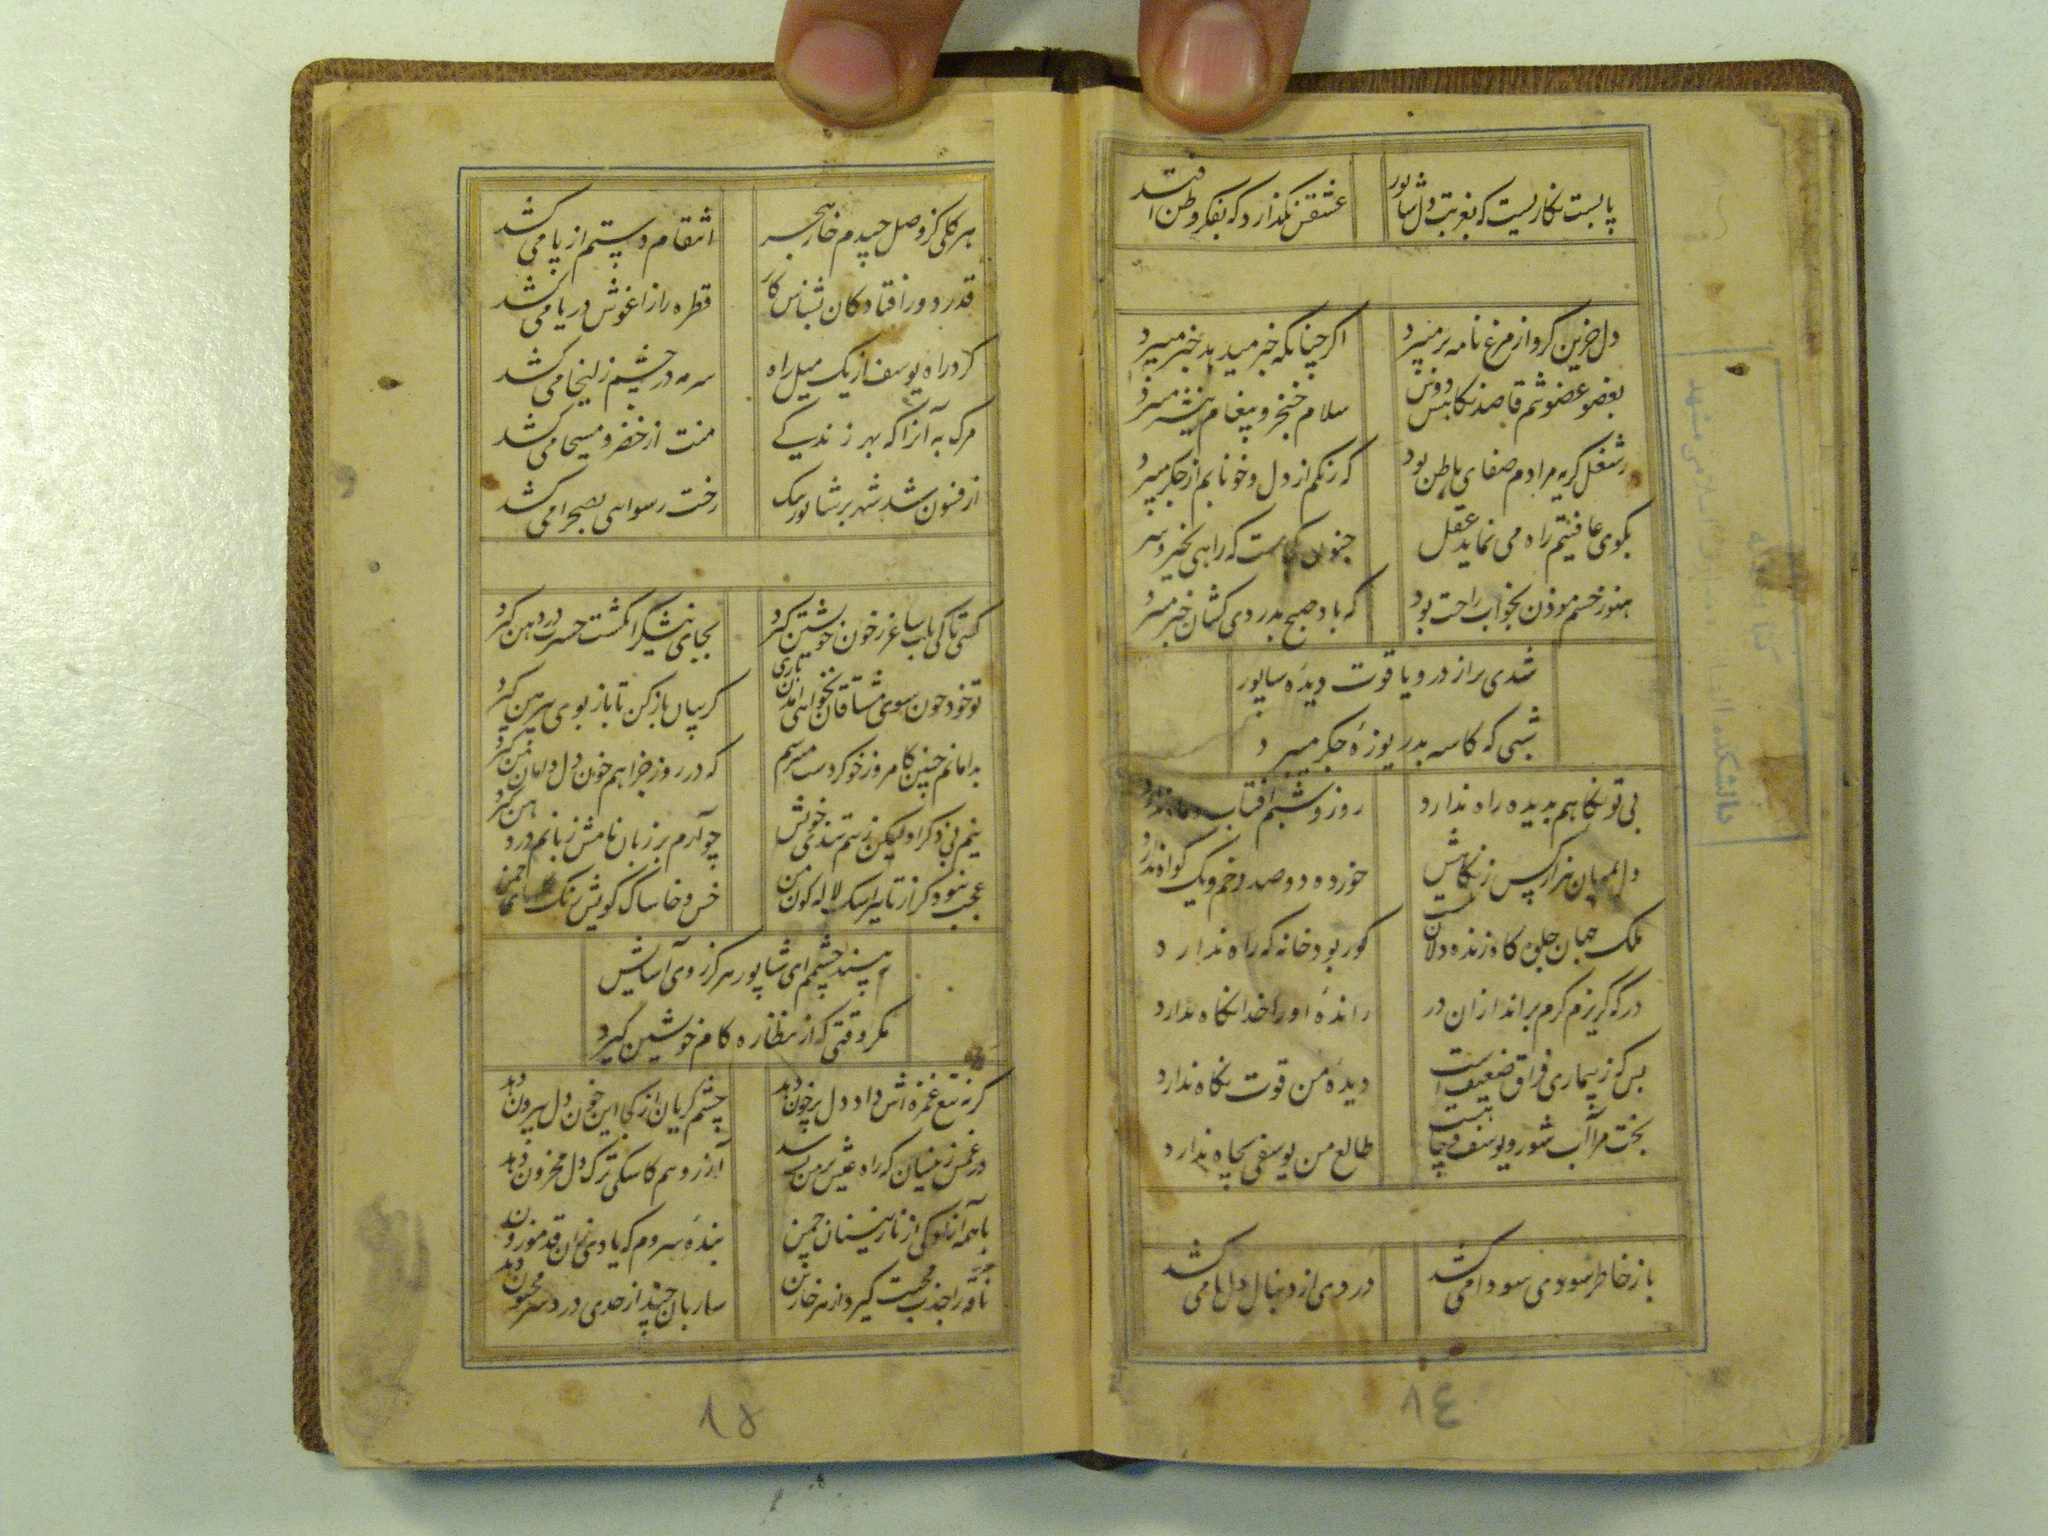 پابست نگاریست که بغربت دل شاپور
عشقش نگذارد که بفکر وطن افتد
دل حزین گرو از مرغ نامه بر میبرد
اگر چنانکه خبر میدهد خبر میبرد
بعضو عضوتنم قاصد نگاهش دوش
سلام خنجر و پیغام نیشتر میبرد
ز شغل گریه مرادم صفای باطن بود
که زنگم از دل و خونابم از جگر میبرد
بکوی عافیتم راه می نماید عقل
جنون کجاست که راهی
هنوز خشم موذن بخواب راحت بود
که باد صبح بدردی کشان خبر میبرد
شدی پر از در و یاقوت دیده شاپور
شبی که کاسه بدریوزه جگر میبرد
بی تو نگاهم بدیده راه ندارد
روز و شبم آفتاب و ماه ندارد
دل بمیان هزار کس ز نگاهش
خورده دو صد زخم و یک گواه ندارد
ملک جهان جلوه گاه زنده دلان نیست
کور بود خانه که راه ندارد
در که گریزم گرم براند از ان در
رانده او را خدا نگاه ندارد
بس که ز بیماری فراق ضعیف است
دیده من قوت نگاه ندارد
بخت مرا آب شور و یوسف در چاه نیست
طالع من یوسفی بچاه ندارد
باز خاطر سوی می سودا می کشد
دردی از دنبال دل ها می کشد
هر گلی کز وصل چیدم خار هجر
انتقام دستم از پا می کشد
قدر دور افتادگان بشناس کار
قطره را ز اغوش دریا می کشد
گرد راه یوسف از یک میل راه
سرمه در چشم زلیخا می کشد
مرگ به آنرا که بهر زندگی
منت از خضر و مسیحا می کشد
از فسون شد شهر بر شاپور
رخت رسوایی بصحرا می کشد
کسی تا کی بلب ساغر ز خون خویشتن گیرد
بجای نیشکر انگشت حسرت در دهن گیرد
تو خود چون سوی مشتاقان نخواهی آمدن باری
گریبان باز کن تا باز بوی پیرهن گیرد
بدامانم چنین کامروز خو کردست میرسم
که در روز جزا هم خون دل دامان من گیرد
نیم بی ذکر او لیکن ز بیم تندی خویش
چو آرم بر زبان نامش زبانم در دهن گیرد
عجب نبود گر از تاثیر اشک لاله گون من
خس و خاشاک کویش رنگ
نبیند چشمم ای شاپور هرگز روی آسایش
مگر وقتی که از نظاره کام خویشتن گیرد
گر نه تیغ غمزه اش داد دل پر خون دهد
چشم گریان از کجا این خون دل بیرون دهد
در غمش زینسان که راه عیش بر من بسته شد
آرزو هم کاشکی ترک دل محزون دهد
با همه آزادگی از نازنینان چمن
بنده سروم که یادی زان قد موزون دهد
ناقه را جذب محبت گیرد از هر خار بن
ساربان چند از حدی درد سر مجنون دهد
۸٤
۸۵